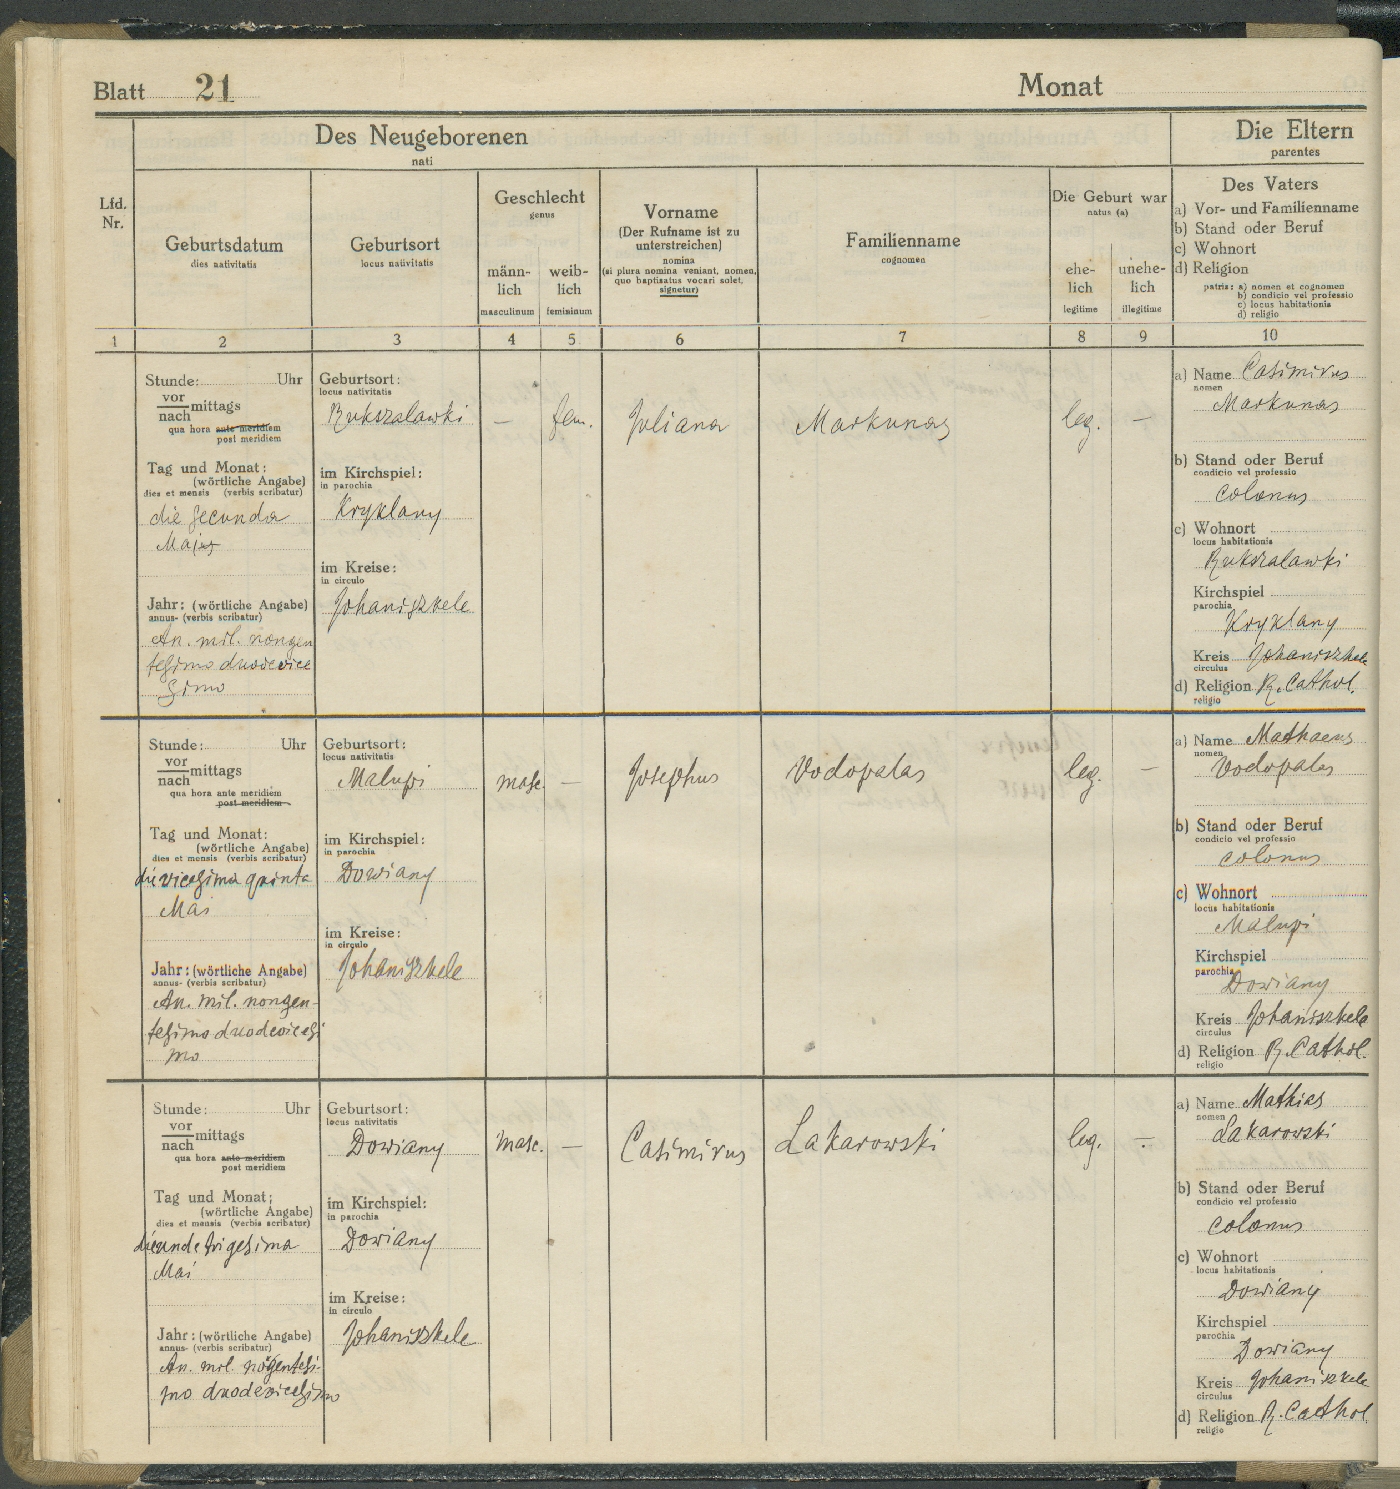 Blatt 21
Monat
Des Neugeborenen
nati
Die Eltern
parentes
Lfd.
Nr.
Geburtsdatum
dies nativitatis
Geburtsort
locus nativitatis
Geschlecht
genus
männ-
lich
masculinum
weib-
lich
femininum
Vorname
(Der Rufname ist zu
unterstreichen)
nomina
(si plura nomina veniant, nomen,
quo baptisatus vocari solet,
signetur)
Familienname
cognomen
Die Geburt war
natus (a)
ehe-
lich
legitime
unehe-
lich
illegitime
Des Vaters
a) Vor- und Familienname
b) Stand oder Beruf
c) Wohnort
d) Religion
patris: a) nomen et cognomen
b) condicio vel professio
c) locus habitationis
d) religio
1 2 3 4 5 6 7 8 9 10
Stunde: Uhr
vor
nach mittags
qua hora ante meridiem
post meridiem
Tag und Monat:
(wörtliche Angabe)
dies et mensis (verbis scribatur)
die secunda
Jahr: (wörtliche Angabe)
annus- (verbis scribatur)
An. mil. nongen
tesimo duodevice
simo
Geburtsort:
locus nativitatis
Rukszalawki
im Kirchspiel:
in parochia
Kryklany
im Kreise:
in circulo
Johaniszkele
—
fem.
Juliana
Markunas
leg.
—
a) Name Casimirus
nomen
Markunas
b) Stand oder Beruf
condicio vel professio
colonus
c) Wohnort
locus habitationis
Rukszalawki
Kirchspiel
parochia
Kryklany
Kreis Johaniszkele
circulus
d) Religion R. Cathol.
religio
Stunde: Uhr
vor
nach mittags
qua hora ante meridiem
post meridiem
Tag und Monat:
(wörtliche Angabe)
dies et mensis (verbis scribatur)
die vicesima quinta
Mai
Jahr: (wörtliche Angabe)
annus- (verbis scribatur)
An. mil. nongen-
tesimo duodevicesi
mo
Geburtsort:
locus nativitatis
Malupi
im Kirchspiel:
in parochia
Dowiany
im Kreise:
in circulo
Johaniszkele
masc.
—
Josephus
Vodopalas
leg.
—
a) Name Mathaeus
nomen
Vodopalas
b) Stand oder Beruf
condicio vel professio
colonus
c) Wohnort
locus habitationis
Malupi
Kirchspiel
parochia
Dowiany
Kreis Johaniszkele
circulus
d) Religion R. Cathol.
religio
Stunde: Uhr
vor
nach mittags
qua hora ante meridiem
post meridiem
Tag und Monat:
(wörtliche Angabe)
dies et mensis (verbis scribatur)
die undetrigesima
Mai
Jahr: (wörtliche Angabe)
annus- (verbis scribatur)
An. mil. nogentesi-
mo duodevicesimo
Geburtsort:
locus nativitatis
Dowiany
im Kirchspiel:
in parochia
Dowiany
im Kreise:
in circulo
Johaniszkele
masc.
—
Casimirus
Lakarowski
leg.
—
a) Name Mathias
nomen
Lakarowski
b) Stand oder Beruf
condicio vel professio
colonus
c) Wohnort
locus habitationis
Dowiany
Kirchspiel
parochia
Dowiany
Kreis Johaniszkele
circulus
d) Religion R. Cathol.
religio